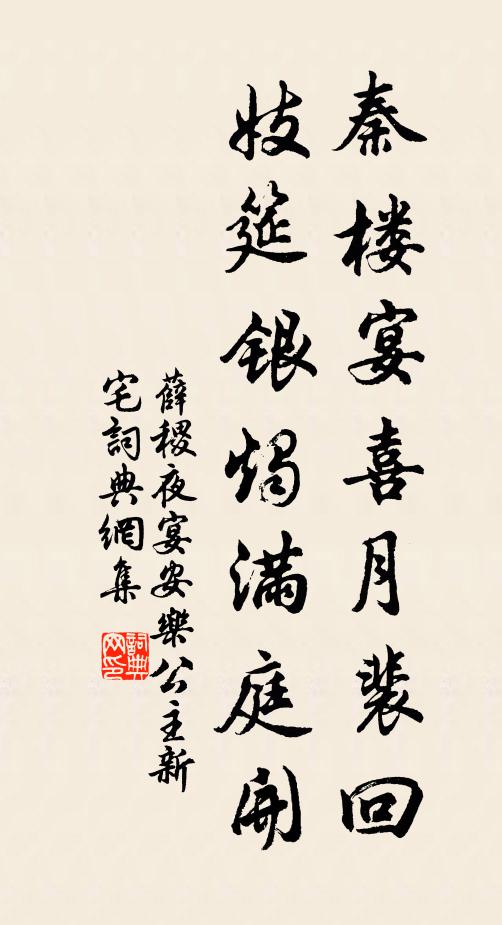 秦楼宴喜月裴回
妓筵银烛满庭开
薛稷夜宴安樂公主新
宅詞典網集
詞典网印